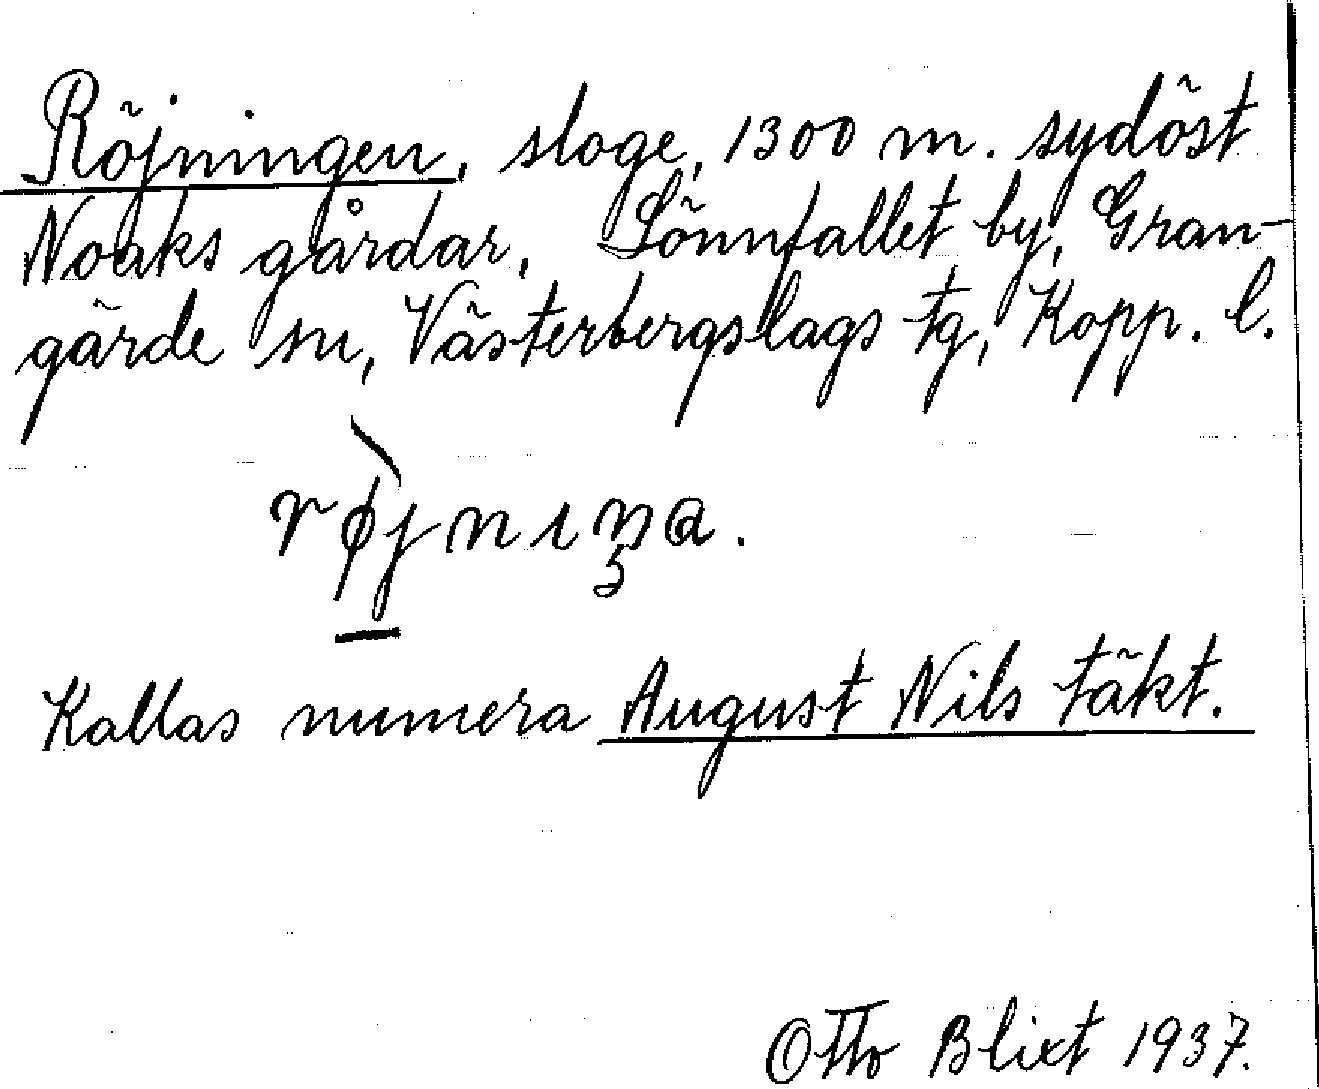 Röjningen, sloge, 1300 m. sydöst
Noaks gårdar, Lönnfallet by, Gran-
gärde sn, Västerbergslags tg, Kopp. l.
røjnıŋa.
Kallas numera August Nils täkt.
Otto Blixt 1937.